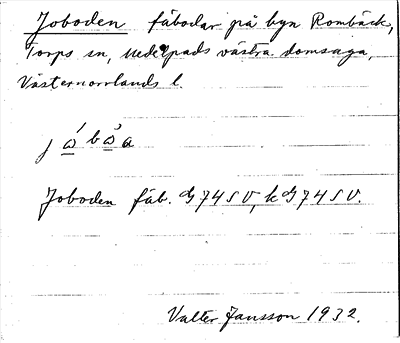 Joboden fäbodar på byn Rombäck,
Torps sn, Medelpads västra domsaga,
Västernorrlands l.
j ώ b ὼ a
Joboden fäb. G 74 S V, k G 74 S V.
Valter Jansson 1932.